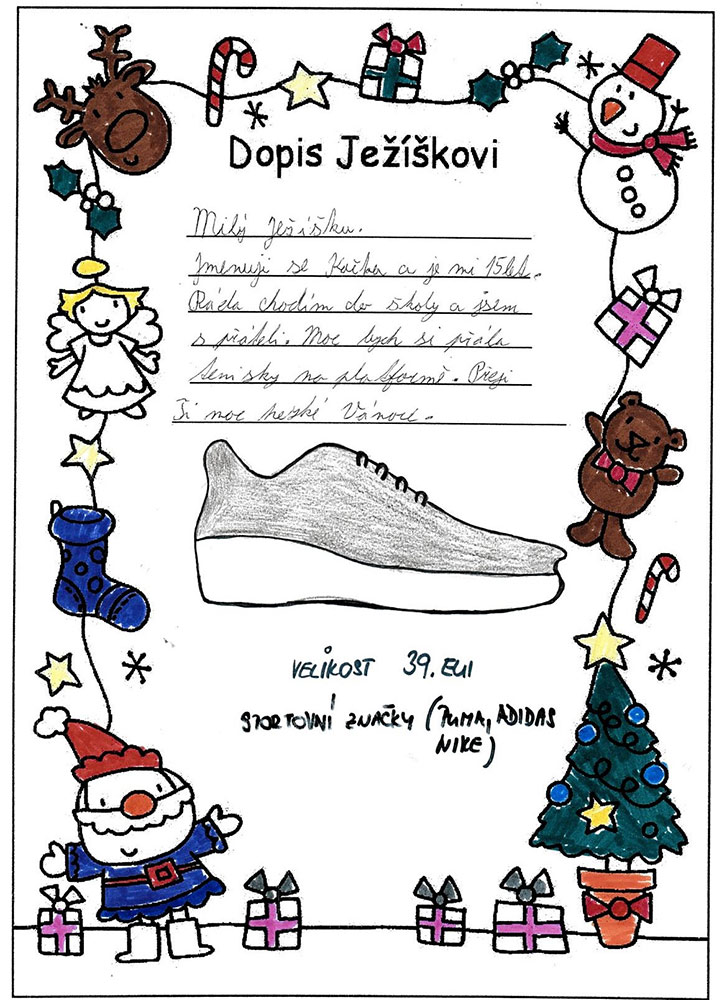 Dopis Ježíškovi
Milý Ježíšku.
Jmenuji se Kačka a je mi 15 let.
Ráda chodím do školy a jsem
s přáteli. Moc bych si přála
tenisky na platformě. Přeji
Ti moc hezké Vánoce.
VELIKOST 39. EU
SPORTOVNÍ ZNAČKY (PUMA, ADIDAS
NIKE)